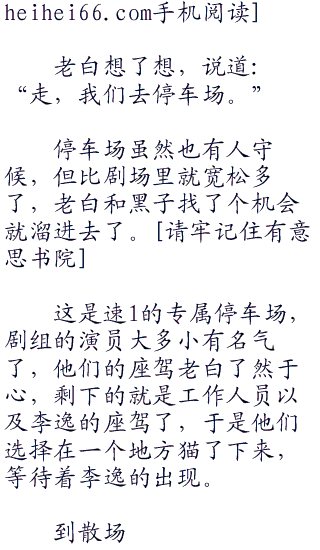 heihei66.com手机阅读]
老白想了想，说道：
“走，我们去停车场。”
停车场虽然也有人守
候，但比剧场里就宽松多
了，老白和黑子找了个机会
就溜进去了。[请牢记住有意
思书院]
这是速1的专属停车场，
剧组的演员大多小有名气
了，他们的座驾老白了然于
心，剩下的就是工作人员以
及李逸的座驾了，于是他们
选择在一个地方猫了下来，
等待着李逸的出现。
到散场